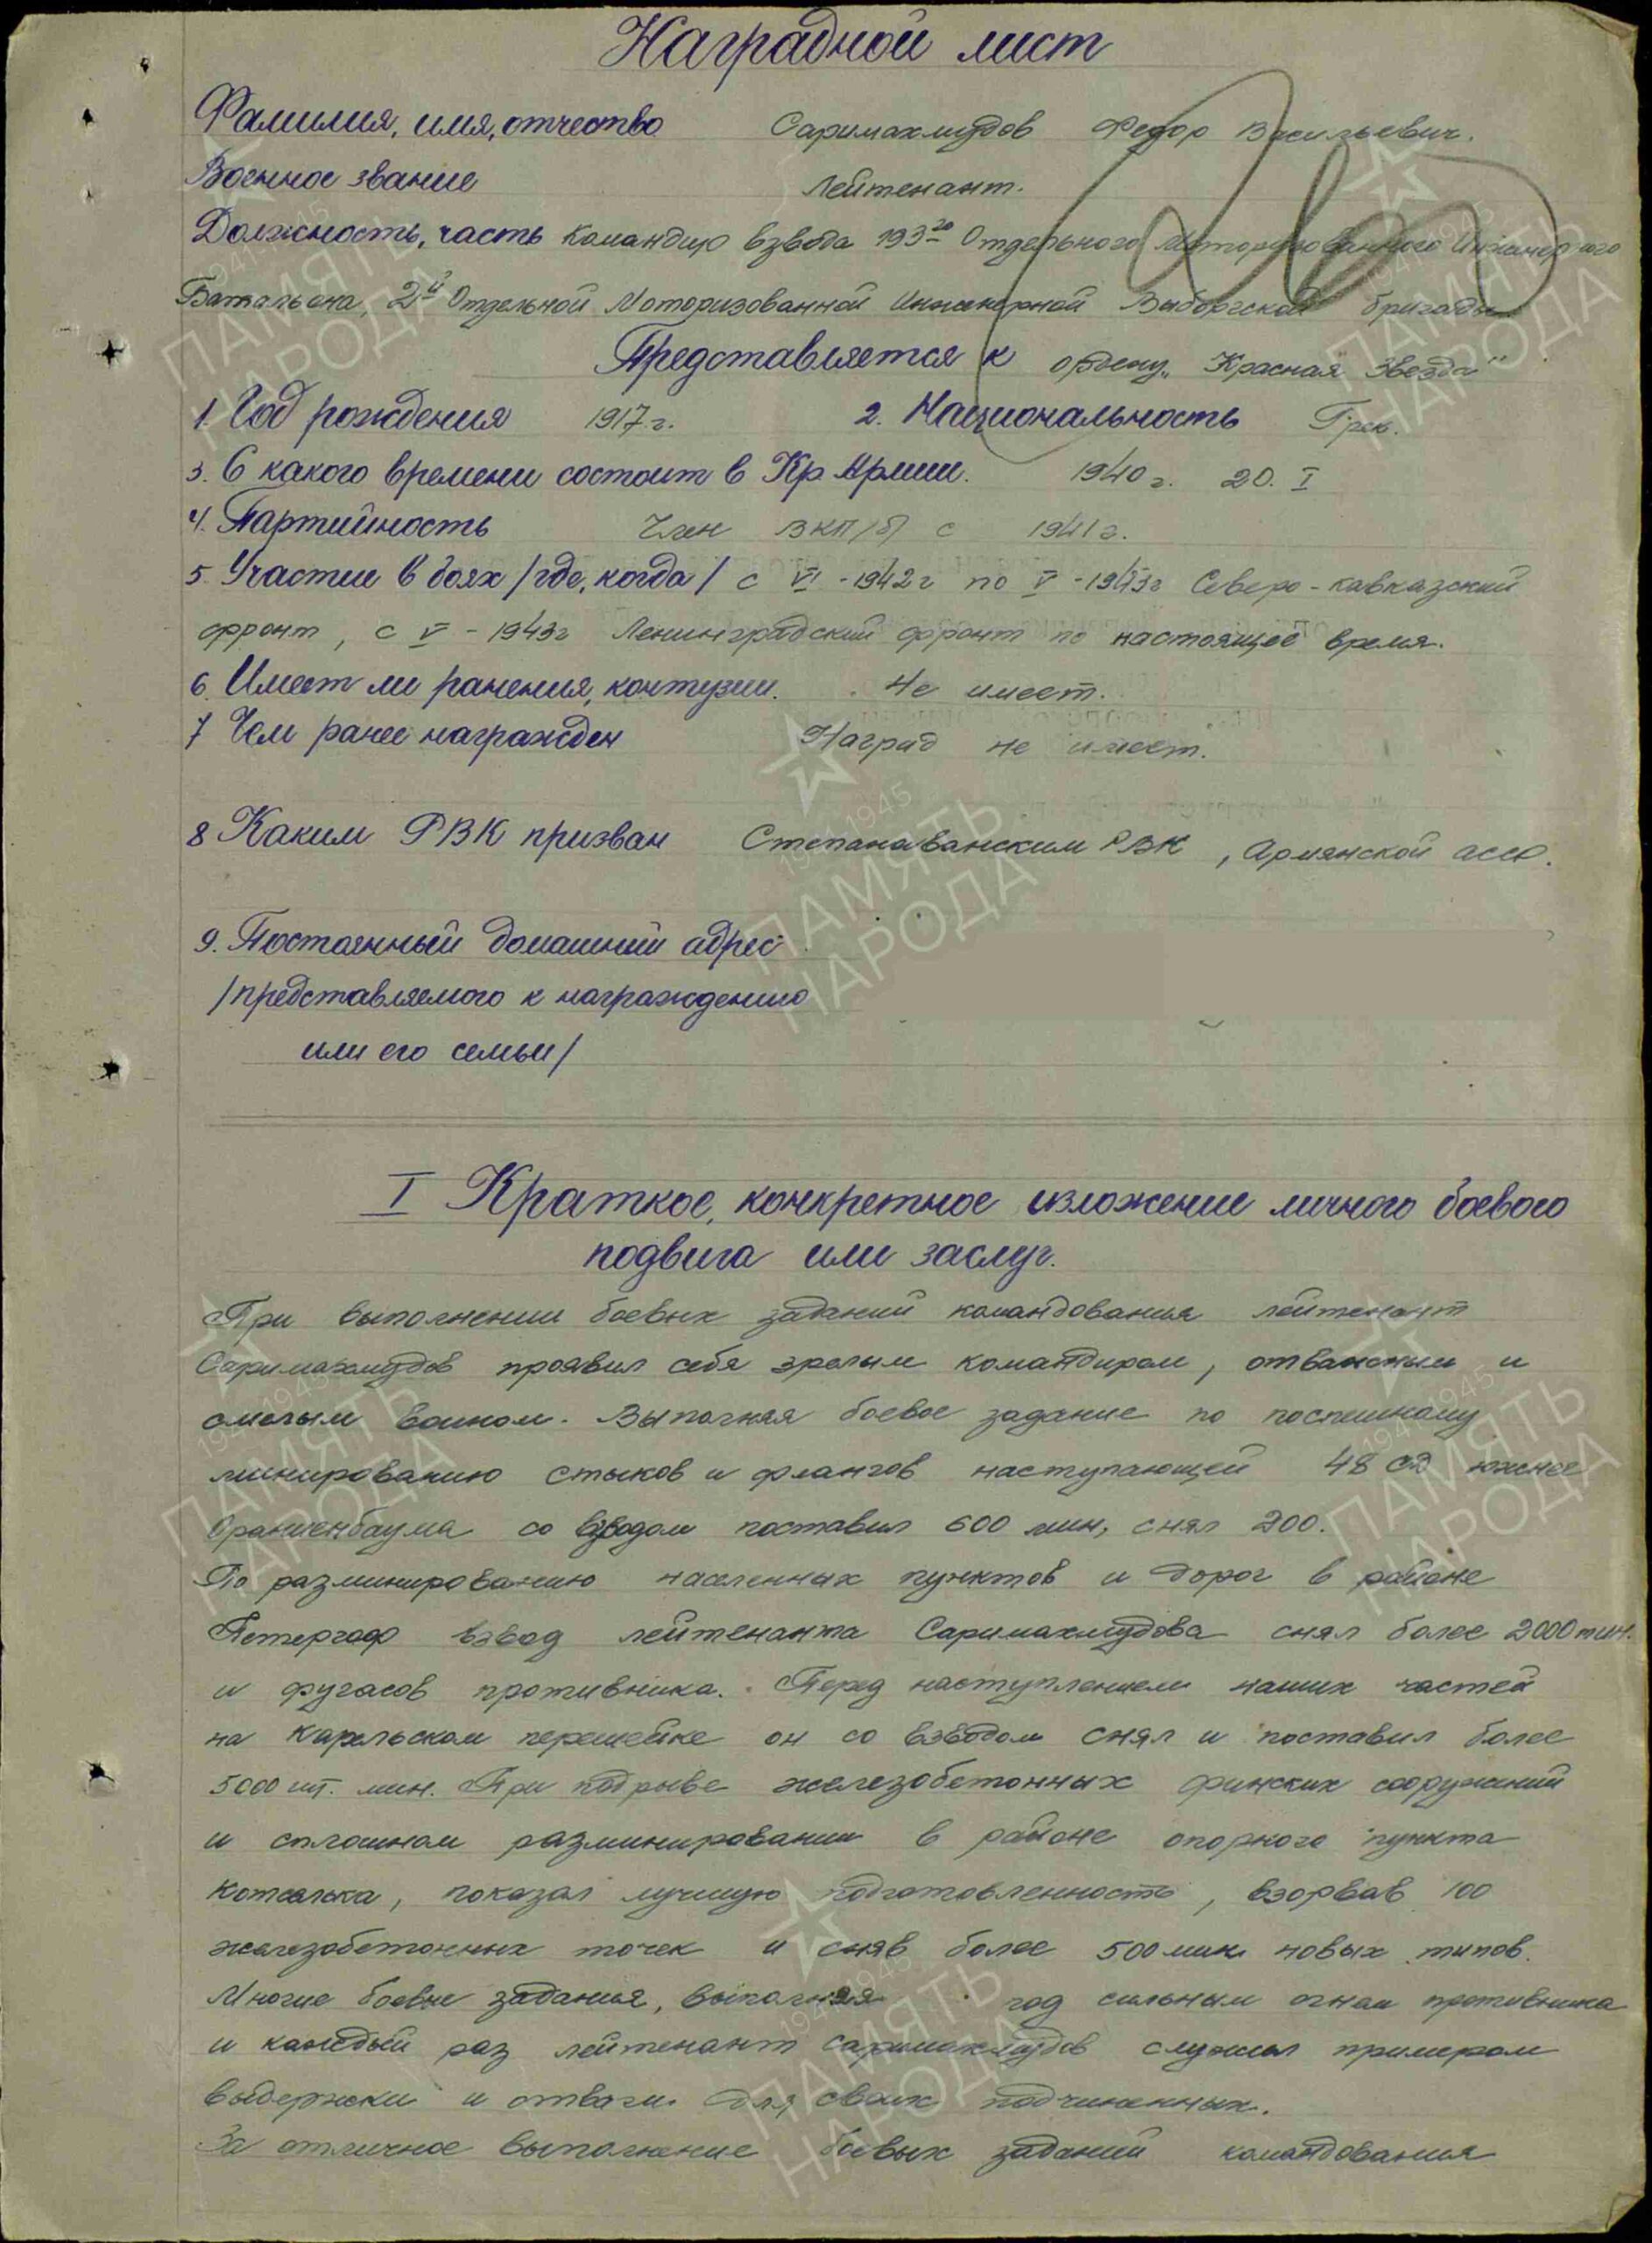 Наградной лист
Фамилия, имя, отчество Саримахмудов Федор Васильевич.
Военное звание Лейтенант.
Должность, часть Командир взвода 193го Отдельного Моторизованного Инженерного
Батальона, 2й Отдельной Моторизованной Инженерной Выборгской бригады
Представляется к ордену „Красная Звезда"
1. Год рождения 1917 г. 2. Национальность Грек.
3. С какого времени состоит в Кр. Армии. 1940 г. 20. I
4. Партийность Член ВКП/б/ с 1941 г.
5. Участие в боях /где, когда/ с VI - 1942 г по V - 1943 г Северо-кавказский
фронт, с V - 1943 г Ленинградский фронт по настоящее время.
6. Имеет ли ранения, контузии. Не имеет.
7 Чем ранее награжден Наград не имеет.
8 Каким РВК призван Степанаванским РВК, Армянской асср.
9. Постоянный домашний адрес
/представляемого к награждению
или его семьи/
I Краткое, конкретное изложение личного боевого
подвига или заслуг.
При выполнении боевых заданий командования лейтенант
Саримахмудов проявил себя зрелым командиром, отважным и
смелым воином. Выполняя боевое задание по поспешному
минированию стыков и флангов наступающей 48 сд южнее
Ораниенбаума со взводом поставил 600 мин, снял 200.
По разминированию населенных пунктов и дорог в районе
Петергоф взвод лейтенанта Саримахмудова снял более 2000 мин.
и фугасов противника. Перед наступлением наших частей
на карельском перешейке он со взводом снял и поставил более
5000 шт. мин. При подрыве железобетонных финских сооружений
и сплошном разминировании в районе опорного пункта
показал лучшую подготовленность, взорвав 100
железобетонных точек и сняв более 500 мин новых типов.
Многие боевые задания, выполняя под сильным огнем противника
и каждый раз лейтенант Саримахмудов служил примером
выдержки и отваги для своих подчиненных.
За отличное выполнение боевых заданий командования
ПАМЯТЬ НАРОДА
1941-1945